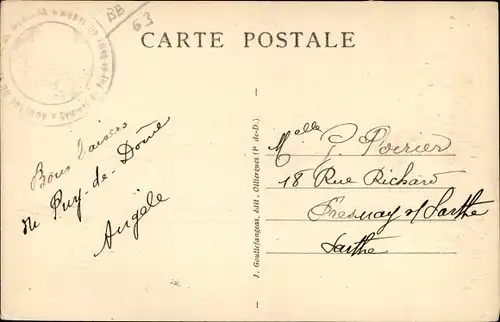 BB
63
CARTE POSTALE
Bons baisers
du Puy-de-Dôme
Angèle
J. Gouttefangeas, édit., Olliergues (P.-de-D.)
Melle G. Poirier
18 Rue Richard
Fresnay s/ Sarthe
Sarthe